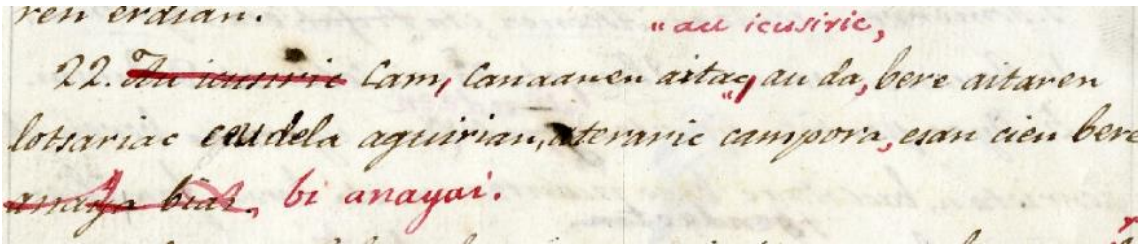 ren erdian.
"au icusiric,
22. Au icusiric Cam, Canaanen aitac, au da, bere aitaren
lotsariac ceudela aguirian, ateraric campora, esan cien bere
anaya biai. bi anayai.